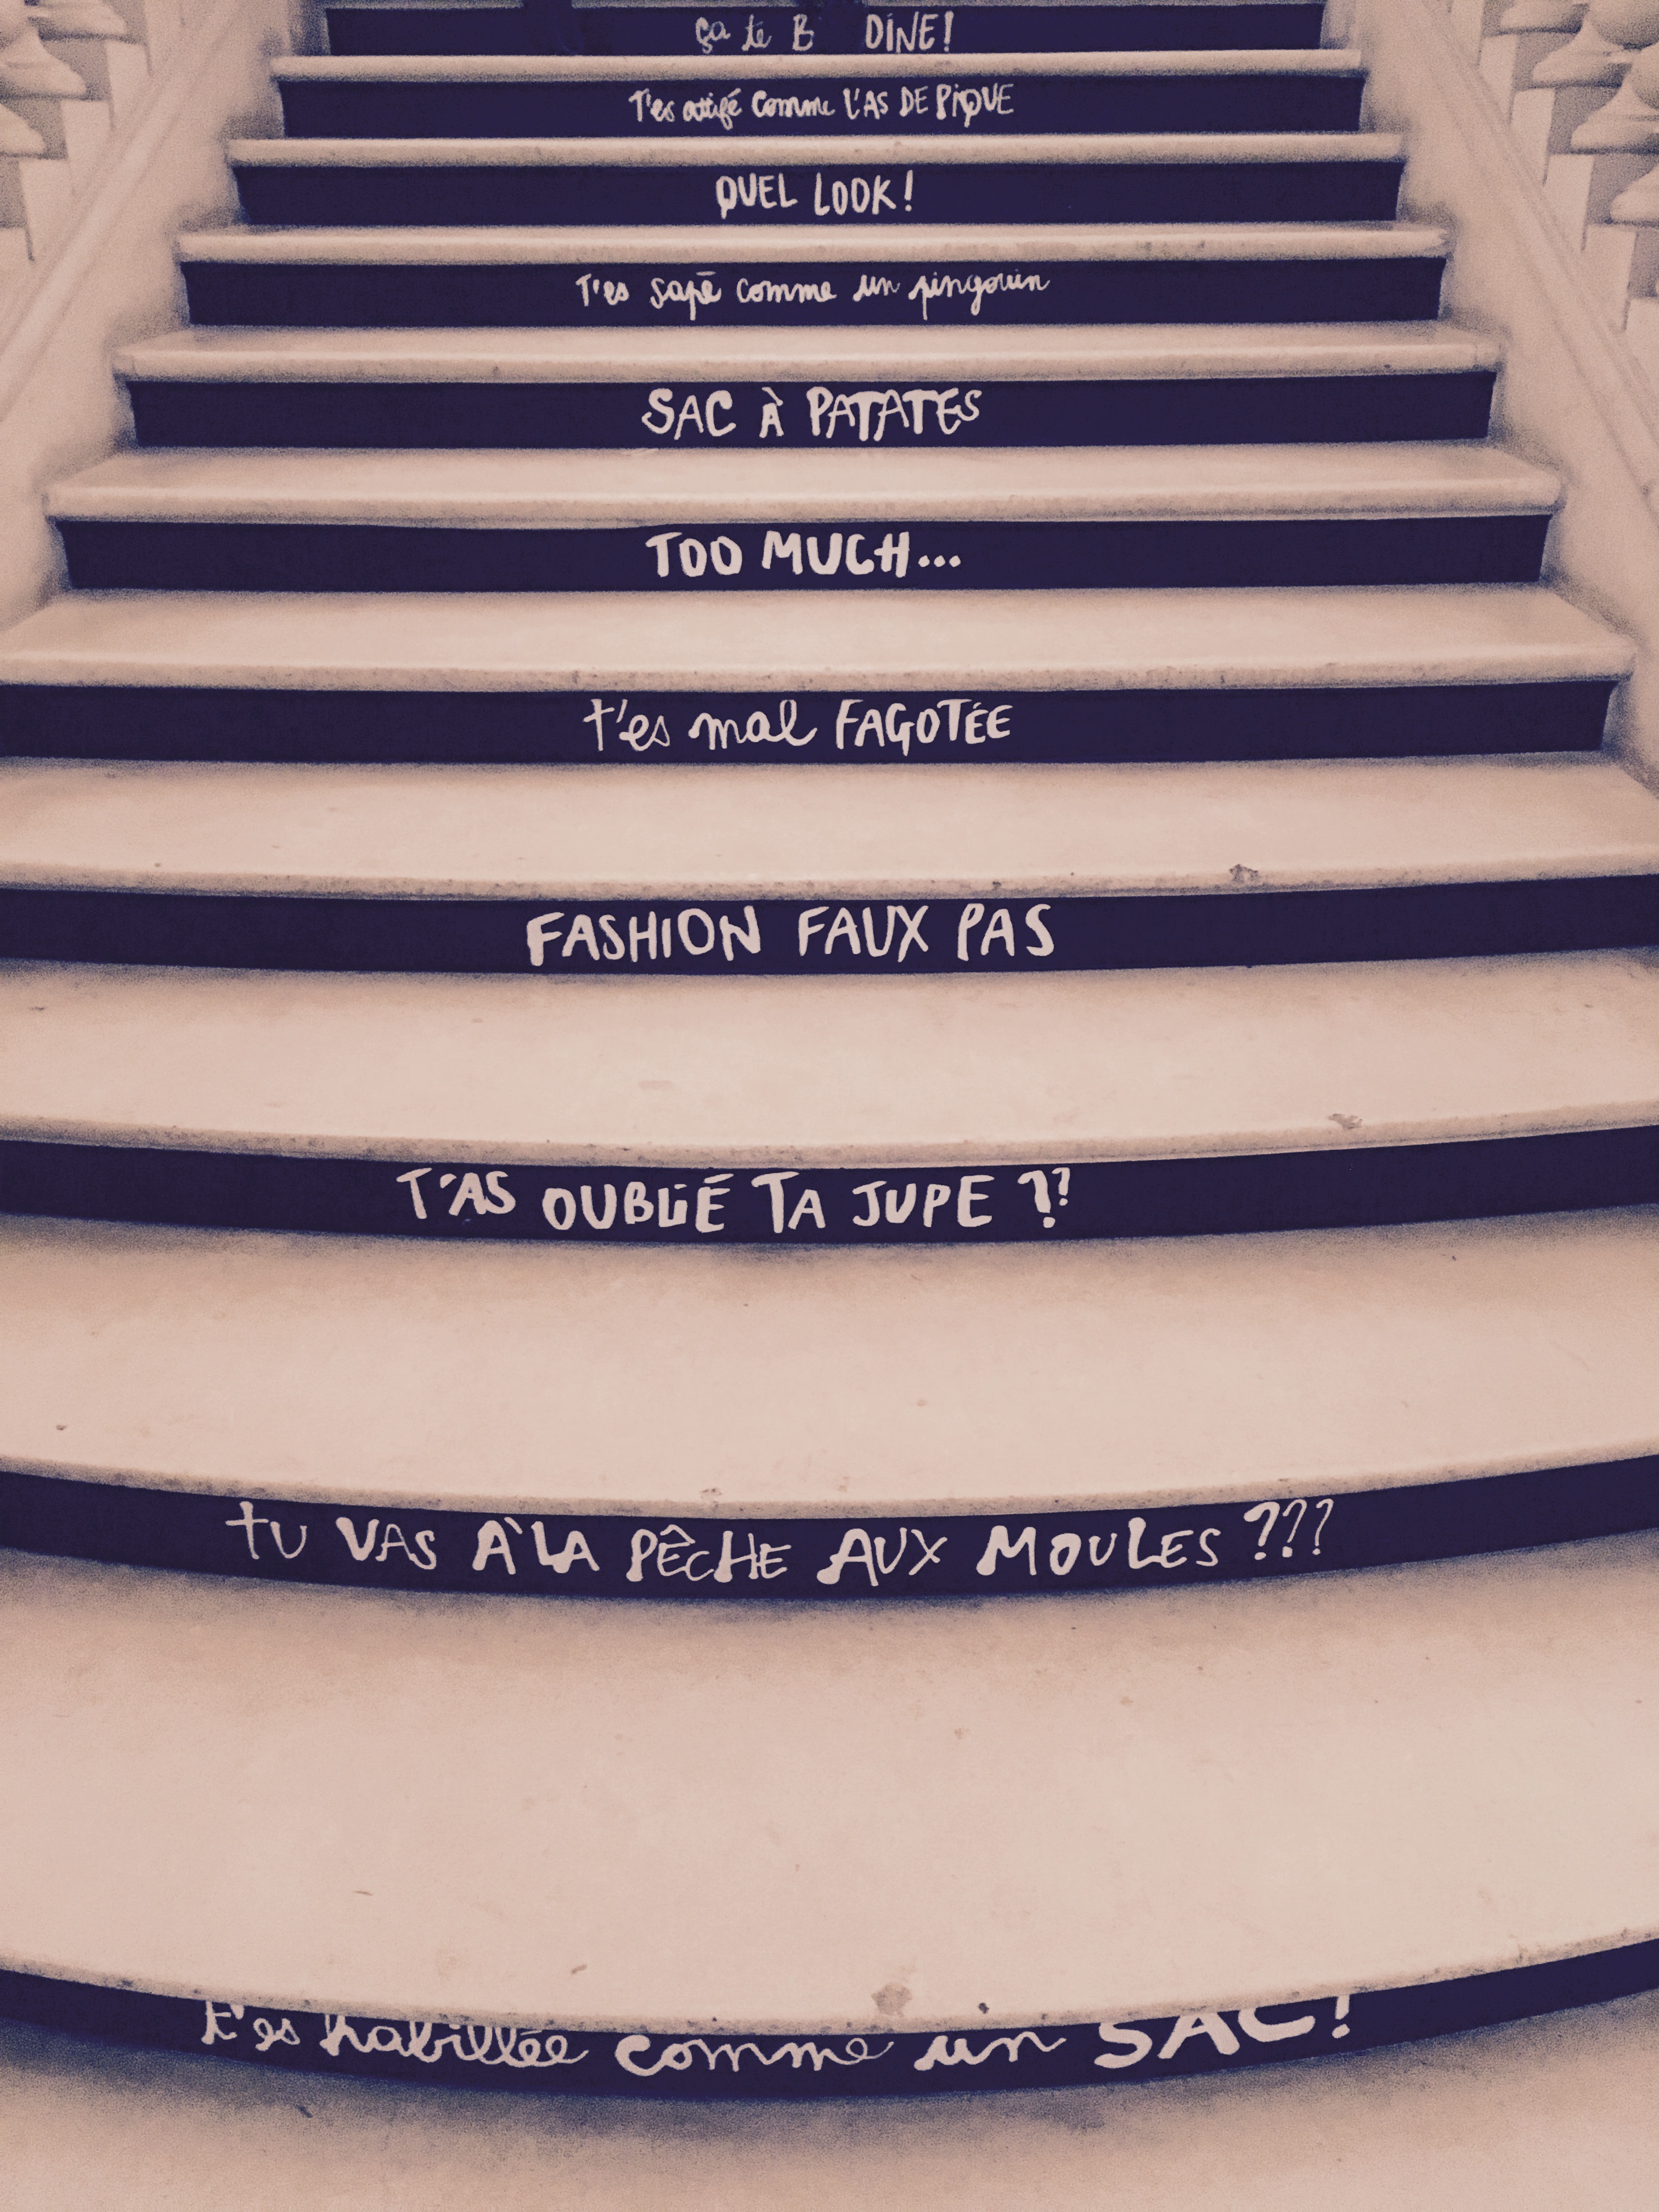 ça te B DINE!
T'es attifé comme L'AS DE PIQUE
QUEL LOOK!
T'es sapé comme un pingouin
SAC À PATATES
TOO MUCH...
t'es mal FAGOTÉE
FASHION FAUX PAS
T'AS OUBLIÉ TA JUPE ??
tU VAS À LA PÊCHE AUX MOULES ???
t'es habillée comme un SAC!